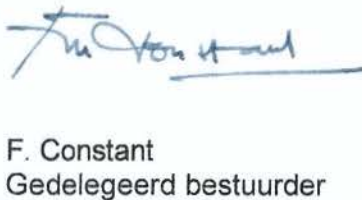 F. Constant
Gedelegeerd bestuurder